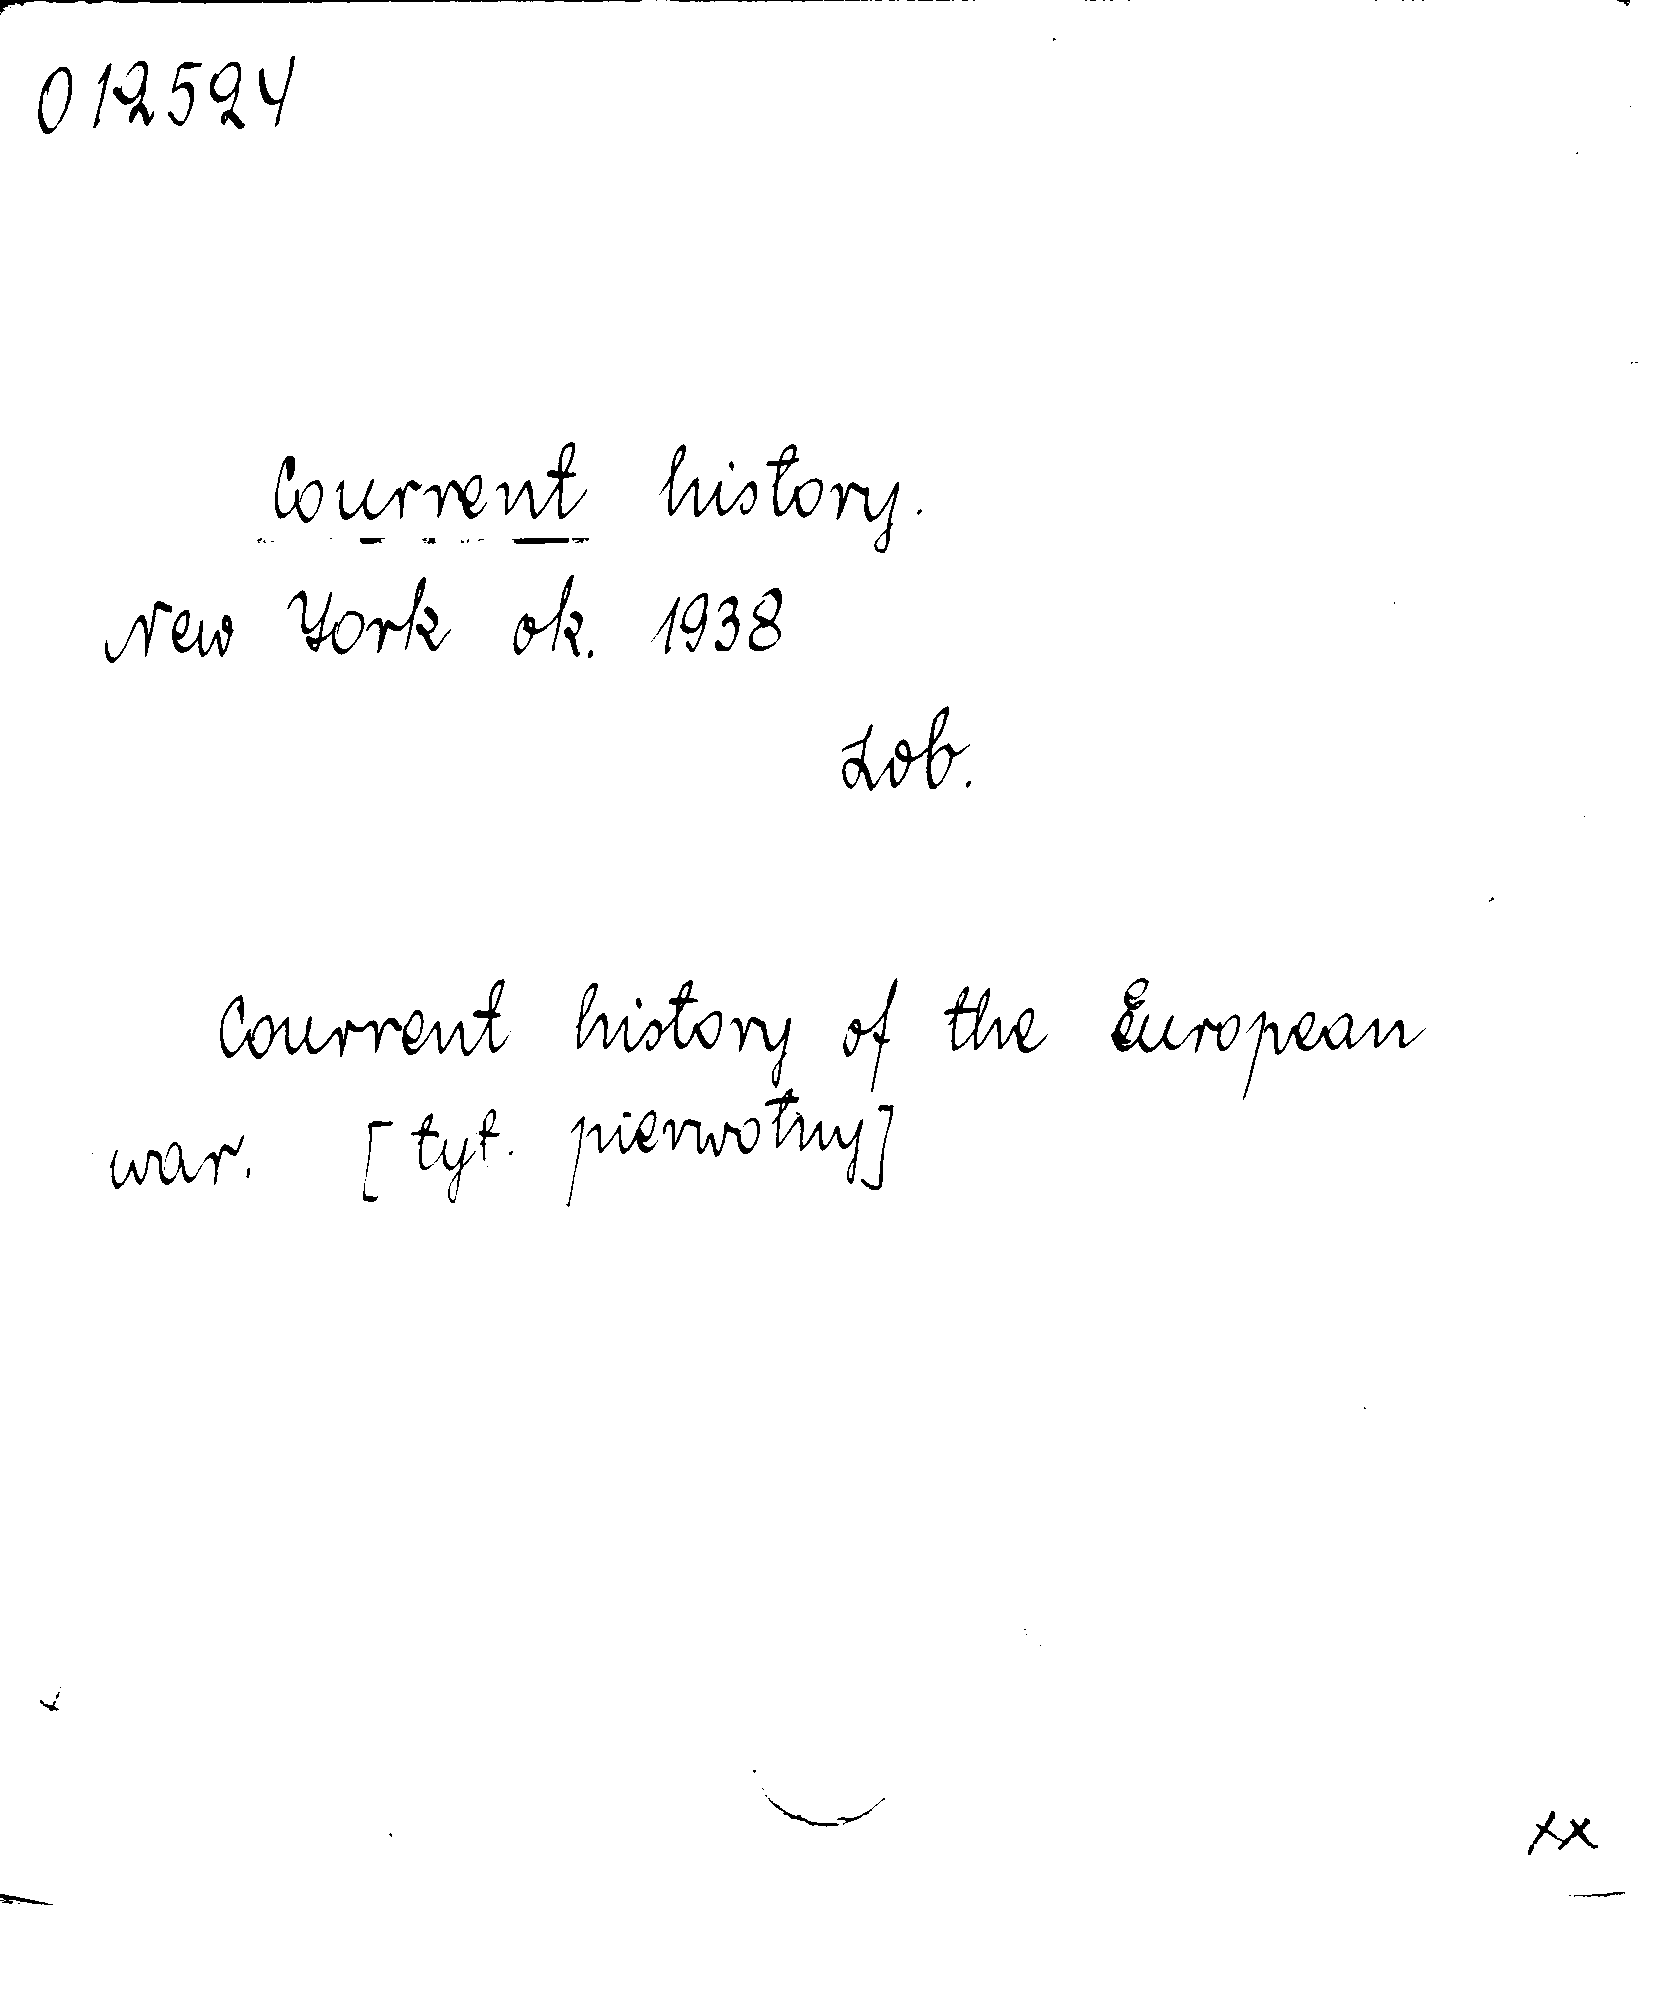 012524
Courrent history.
New York ok. 1938
Zob.
Courrent history of the European
war. [tyt. pierwotny]
xx